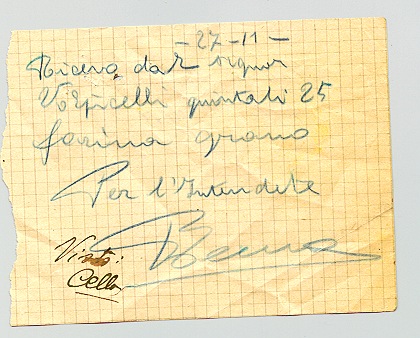 - 27 - 11 -
Ricevo dal signor
Volpicelli quintali 25
farina grano
Per l'Intendete
Visto: